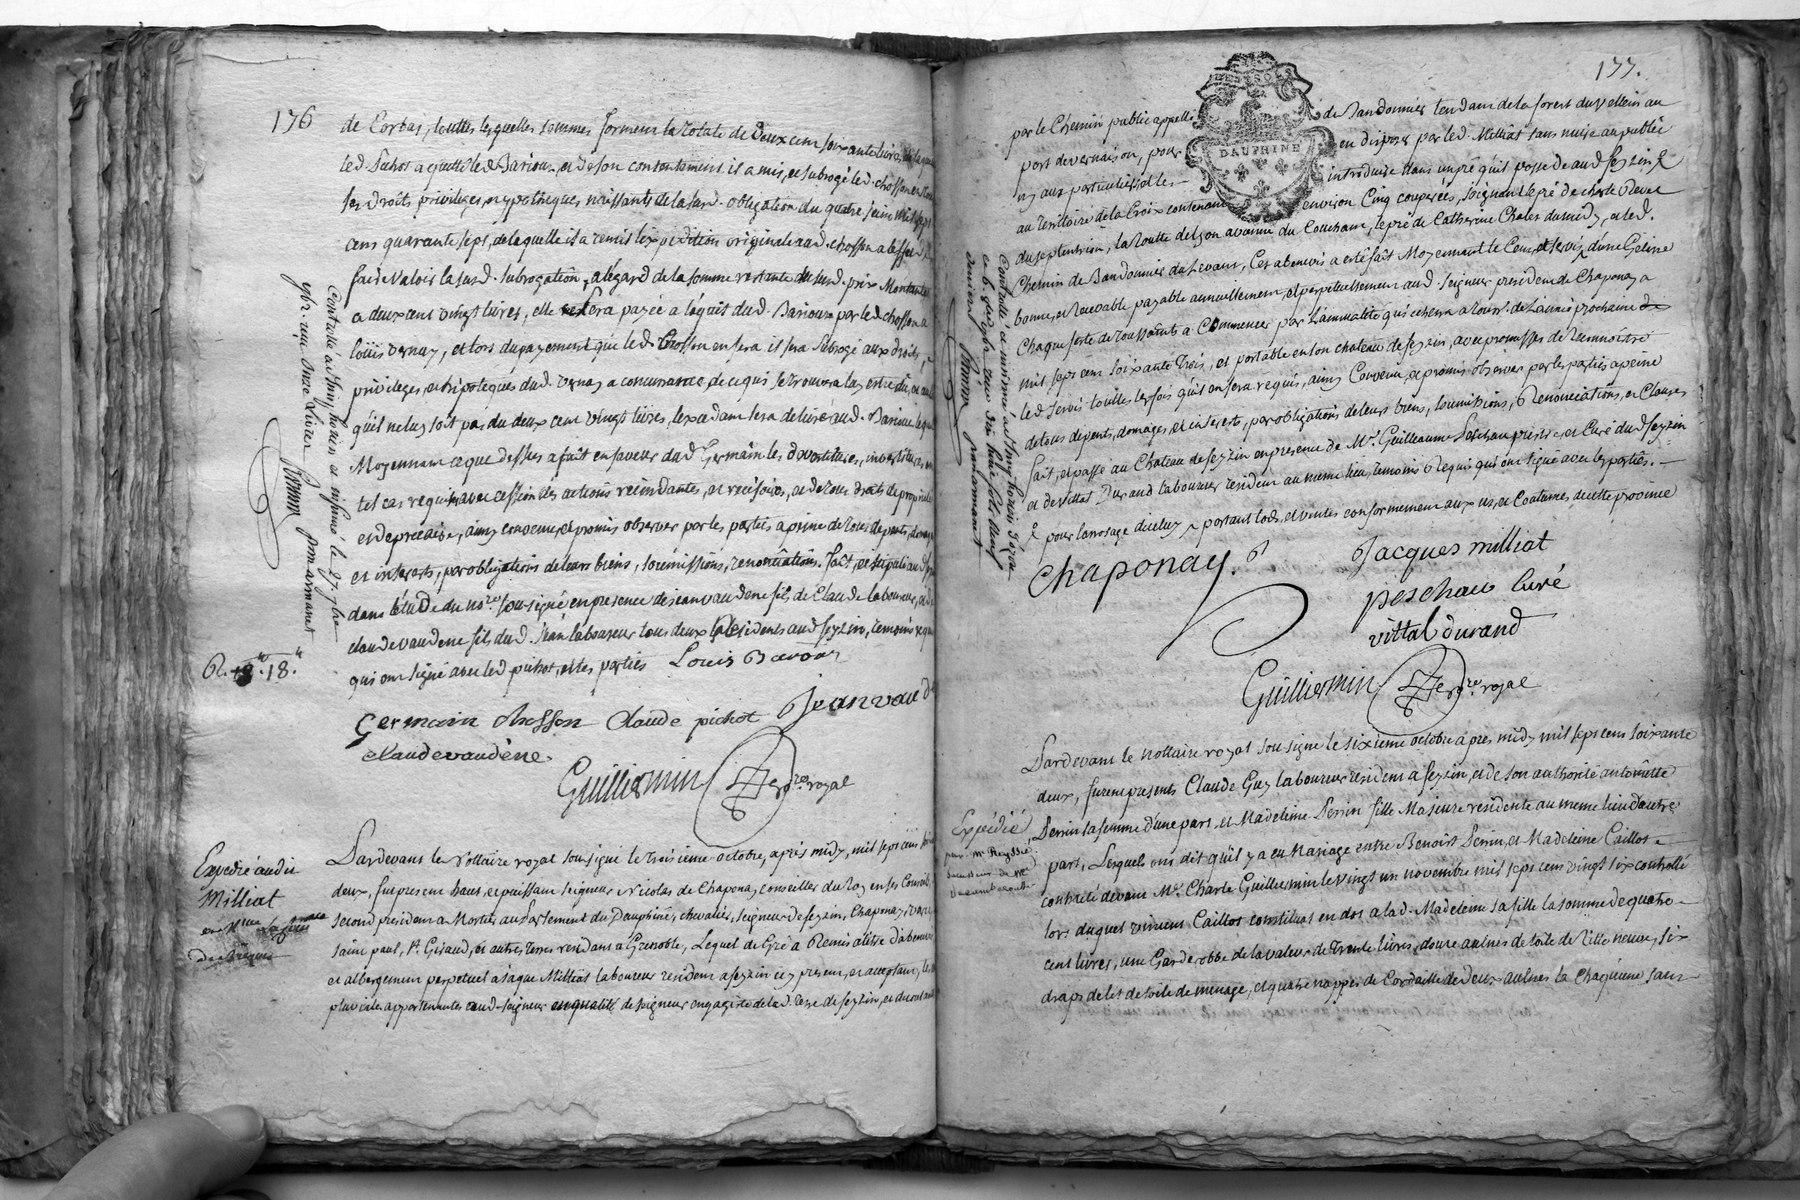 176
de Corbas, toutes lesquelles sommes forment la totale de deux cent soixante livres
led. Pichot a quitté led. Bariou, et de son consentement il a mis, et subrogé led. chosson
ses droits privileges, hypotheques naissants de la sud. obligation du quatre juin mil sept
cens quarante sept, de laquelle il a remis l'expedition originale aud. chosson
faire valoir la sud. subrogation, a legard de la somme restante du sud. prix Montante
a deux cent vingt livres, elle sera payée a l'aquit dud. Barioux par led. chosson a
louis vernay, et lors du payement que led. chosson en fera il sera subrogé aux droits,
privileges, et hipoteques dud. vernay a concurrance de ce qui se trouvera luy estre dû,
qu'il ne luy soit pas dû deux cent vingt livres, lexcedant sera delivré aud. Barioux
Moyennant ce que dessus a fait en faveur dud Germain les devestitures, investitures
tel cas requises avec cession des actions rescindantes, et rescisoires, et de tous droits de proprieté
et de precaire, ainsy convenu, et promis observer par les parties a peine de tous depents
et interests, par obligations de leurs biens, soumissions, renonciations. fait, et stipulé
dans l'étude du nore. soussigné en presence de jean vaudene fils de Claude laboureur,
claude vaudene fils dud. Jean laboureur tous deux residents aud feyzin, temoins
qui ont signé avec led pichot, et les parties Louis Bariou
Germain chosson Claude pichot Jean vaude
claude vaudêne
Guilliermin nore royal
Contrôlé a St Simphorien et insinué le 27. 7bre
reçu onze livres
Armanet
R. 18.
Expedié aud
Milliat
Pardevant le Nottaire royal soussigné le troisieme octobre, aprés midy, mil sept cens
deux, fut present haut, et puissant seigneur Nicolas de Chaponay, conseiller du Roy en ses Conseils,
second president a Mortier au Parlement du Dauphiné, chevalier, seigneur de feyzin, Chaponay,
saint paul, St. Giraud, et autres terres resident a Grenoble, Lequel de Gré a Remis a titre d'abenevis
et albergement perpetuel a Jaque Milliat laboureur resident a feyzin icy present, et acceptant,
pluviales appartenantes aud. seigneur en qualité de seigneur engagiste de la d. Terre de feyzin, et
177.
par le Chemin public appellé de Bandonnier tendant de la forest du vellein au
port de vernaison, pour en disposer par led. Milliat sans nuire au public
ny aux particuliers et les introduire dans un pré qu'il possede aud feyzin
au Territoire de la Croix contenant environ Cinq couperées, joignant le pré de
du septentrion, la Routte de Lyon a vienne du Couchant, le pré de Catherine Chales du midy, et led.
Chemin de Bandonnier du Levant, Cet abenevis a esté fait Moyennant le Cens, et servis d'une Geline
bonne, et recevable payable annuellement, et perpetuellement aud. seigneur president de Chaponay a
Chaque feste de Toussaints a Commencer par l'annualité qui echerra a Toussts. de l'année prochaine
mil sept cent soixante Trois, et portable en son chateau de feyzin, avec promesses de reconnoitre
led. servis toutes les fois qu'il en sera requis, ainsy Convenu, et promis observer par les parties a peine
de tous depents, domages, et interests, par obligations de leurs biens, soumissions, Renonciations, et Clauses
fait, et passé au Chateau de feyzin en presence de Mr. Guilleaume Peschau prestre, et Curé dud feyzin
et de vittal Durand laboureur resident au meme lieu, temoins Requis qui ont signé avec les parties.
pour l'arrosage diceluy portant lods, et ventes conformement aux us, et Coutumes de cette province
Chaponay.
Jacques milliat
peschau curé
vittal durand
Guilliermin nore royal
Contrôlé et insinué a St Simphorien d'ozon
Armanet
DAUPHINE
Expedié
par Mr Reyssié
successeur de Me
Pardevant le nottaire royal soussigné le sixieme octobre aprés midy mil sept cent soixante
deux, furent presents Claude Guy laboureur resident a feyzin, et de son authorité antoinette
Perrin sa femme d'une part, et Madeleine Perrin fille Majeure residente au meme lieu d'autre
part, Lesquels ont dit qu'il y a eu Mariage entre Benoist Perrin, et Madeleine Caillot
contracté devant Me. Charle Guilliermin le vingt un novembre mil sept cens vingt six controllé
lors duquel vincent Caillot constitua en dot a lad. Madeleine sa fille la somme de quatre
cent livres, une Garderobbe de la valeur de trente livres, douze aulnes de toile de Ritte neuve, six
draps de lit de toile de menage, et quatre nappes de Cordaille de deux aulnes la Chaquune sans